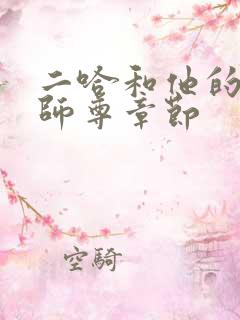 二哈和他的
師尊章節
空騎